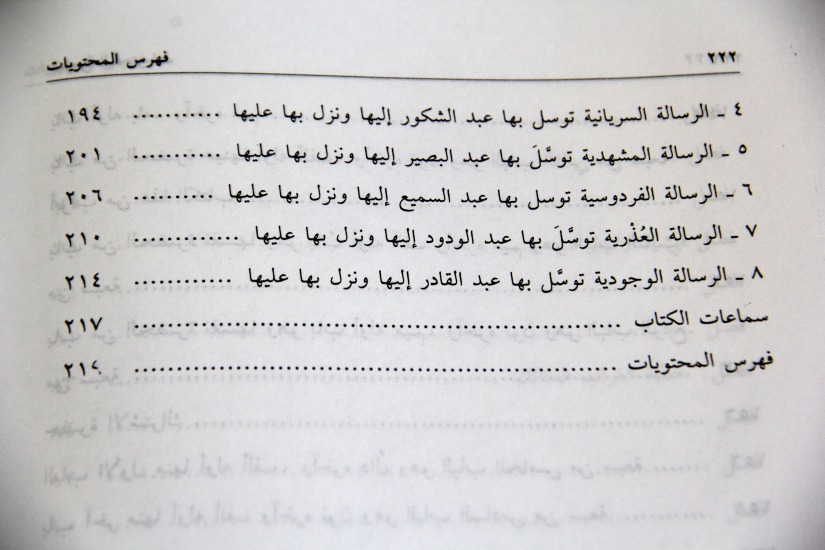 ٢٢٢ فهرس المحتويات
٤ ـ الرسالة السريانية توسل بها عبد الشكور إليها ونزل بها عليها ........... ١٩٤
٥ ـ الرسالة المشهدية توسَّلَ بها عبد البصير إليها ونزل بها عليها ........... ٢٠١
٦ ـ الرسالة الفردوسية توسل بها عبد السميع إليها ونزل بها عليها .......... ٢٠٦
٧ ـ الرسالة العُذْرية توسَّلَ بها عبد الودود إليها ونزل بها عليها ............ ٢١٠
٨ ـ الرسالة الوجودية توسَّل بها عبد القادر إليها ونزل بها عليها ............ ٢١٤
سماعات الكتاب ........................................................ ٢١٧
فهرس المحتويات ........................................................